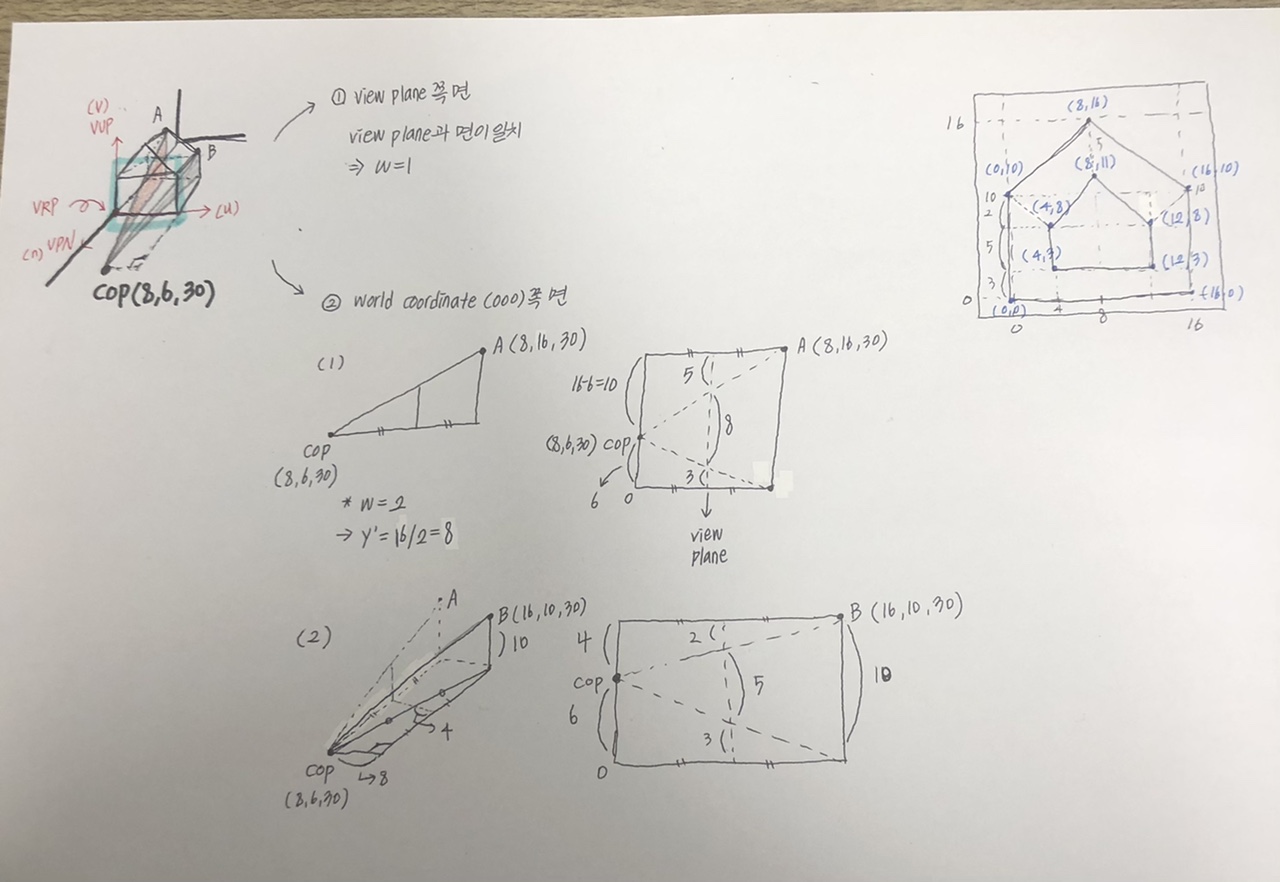 (V)
VUP
A
B
VRP
(u)
(n) VPN
COP(8,6,30)
① view plane 쪽 면
view plane과 면이 일치
⇒ w=1
② world coordinate (000) 쪽 면
(1)
A (8,16,30)
COP
(8,6,30)
* w=2
→ y'=16/2=8
A (8,16,30)
16-6=10
5
8
(8,6,30) COP
3
6
0
view
plane
(2)
A
B(16,10,30)
10
4
COP
→8
(8,6,30)
B (16,10,30)
4
2
COP
5
10
6
3
0
16
(8,16)
5
(0,10)
(8,11)
(16,10)
10
10
2
(4,8)
(12,8)
5
(4,3)
(12,3)
3
0
(0,0)
(16,0)
0
4
8
16